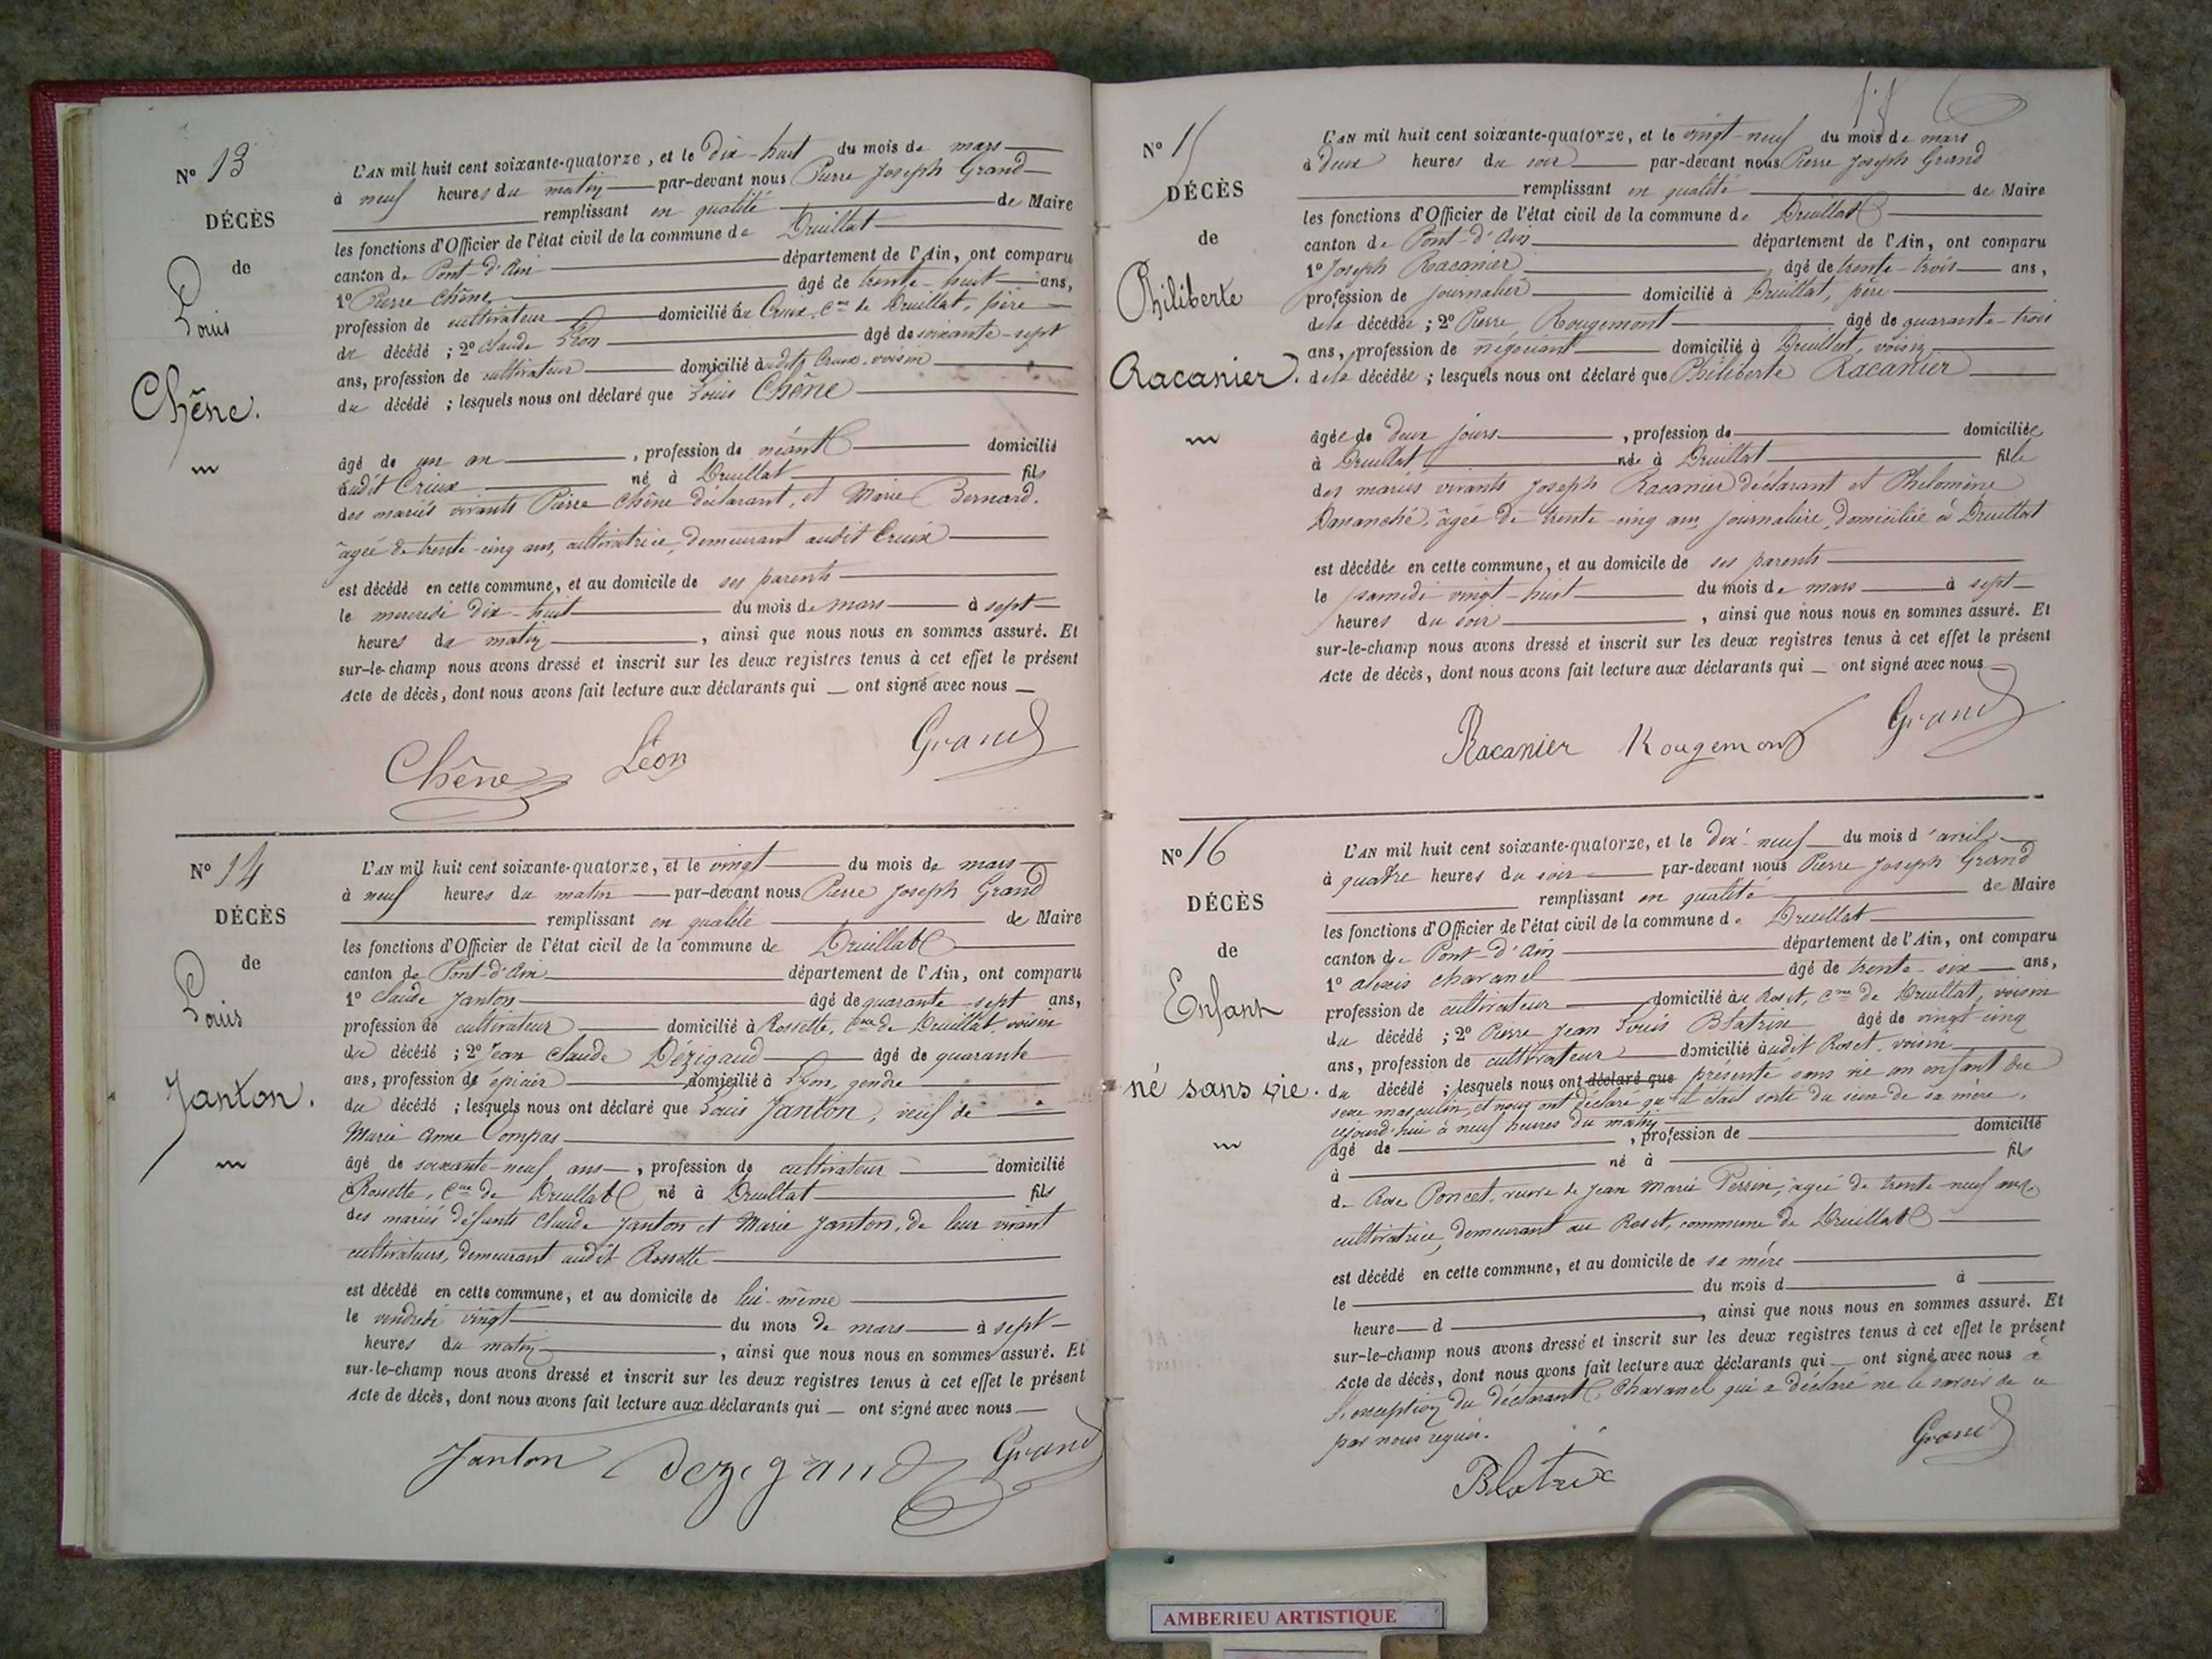 N° 13
DÉCÈS
de
Louis
Chêne.
L'AN mil huit cent soixante-quatorze, et le dix-huit du mois de mars
à neuf heures du matin par-devant nous Pierre Joseph Grand
remplissant en qualité de Maire
les fonctions d'Officier de l'état civil de la commune de Druillat
canton de Pont-d'Ain département de l'Ain, ont comparu
1° Pierre Chêne âgé de trente-huit ans,
profession de cultivateur domicilié au Crieux, Cne de Druillat, père
du décédé ; 2° Claude Léon âgé de soixante-sept
ans, profession de cultivateur domicilié audit Crieux, voisin
du décédé ; lesquels nous ont déclaré que Louis Chêne
âgé de un an, profession de néant domicilié
audit Crieux né à Druillat fils
des mariés vivants Pierre Chêne déclarant, et Marie Bernard,
âgée de trente-cinq ans, cultivatrice, demeurant audit Crieux
est décédé en cette commune, et au domicile de ses parents
le mercredi dix-huit du mois de mars à sept
heures du matin, ainsi que nous nous en sommes assuré. Et
sur-le-champ nous avons dressé et inscrit sur les deux registres tenus à cet effet le présent
Acte de décès, dont nous avons fait lecture aux déclarants qui ont signé avec nous
Chêne Léon Grand
N° 14
DÉCÈS
de
Louis
Janton.
L'AN mil huit cent soixante-quatorze, et le vingt du mois de mars
à neuf heures du matin par-devant nous Pierre Joseph Grand
remplissant en qualité de Maire
les fonctions d'Officier de l'état civil de la commune de Druillat
canton de Pont-d'Ain département de l'Ain, ont comparu
1° Claude Janton âgé de quarante-sept ans,
profession de cultivateur domicilié à Rossette, Cne de Druillat, voisin
du décédé ; 2° Jean Claude Dézigaud âgé de quarante
ans, profession de épicier domicilié à Lyon, gendre
du décédé ; lesquels nous ont déclaré que Louis Janton, veuf de
Marie Anne Compas
âgé de soixante-neuf ans, profession de cultivateur domicilié
à Rossette, Cne de Druillat né à Druillat fils
des mariés défunts Claude Janton et Marie Janton, de leur vivant
cultivateurs, demeurant audit Rossette
est décédé en cette commune, et au domicile de lui-même
le vendredi vingt du mois de mars à sept
heures du matin, ainsi que nous nous en sommes assuré. Et
sur-le-champ nous avons dressé et inscrit sur les deux registres tenus à cet effet le présent
Acte de décès, dont nous avons fait lecture aux déclarants qui ont signé avec nous
Janton Dezigaud Grand
N° 15
DÉCÈS
de
Philiberte
Racanier.
L'AN mil huit cent soixante-quatorze, et le vingt-neuf du mois de mars
à deux heures du soir par-devant nous Pierre Joseph Grand
remplissant en qualité de Maire
les fonctions d'Officier de l'état civil de la commune de Druillat
canton de Pont-d'Ain département de l'Ain, ont comparu
1° Joseph Racanier âgé de trente-trois ans,
profession de journalier domicilié à Druillat, père
de la décédée ; 2° Pierre Rougemont âgé de quarante-trois
ans, profession de négociant domicilié à Druillat, voisin
de la décédée ; lesquels nous ont déclaré que Philiberte Racanier
âgée de deux jours, profession de domiciliée
à Druillat née à Druillat fille
des mariés vivants Joseph Racanier déclarant et Philomène
âgée de trente-cinq ans, journalière, domiciliée à Druillat
est décédée en cette commune, et au domicile de ses parents
le samedi vingt-huit du mois de mars à sept
heures du soir, ainsi que nous nous en sommes assuré. Et
sur-le-champ nous avons dressé et inscrit sur les deux registres tenus à cet effet le présent
Acte de décès, dont nous avons fait lecture aux déclarants qui ont signé avec nous
Racanier Rougemont Grand
N° 16
DÉCÈS
de
Enfant
né sans vie.
L'AN mil huit cent soixante-quatorze, et le dix-neuf du mois d'avril
à quatre heures du soir par-devant nous Pierre Joseph Grand
remplissant en qualité de Maire
les fonctions d'Officier de l'état civil de la commune de Druillat
canton de Pont-d'Ain département de l'Ain, ont comparu
1° Alexis Charanel âgé de trente-six ans,
profession de cultivateur domicilié au Roset, Cne de Druillat, voisin
du décédé ; 2° Pierre Jean Louis Blatrix âgé de vingt-cinq
ans, profession de cultivateur domicilié audit Roset, voisin
du décédé ; lesquels nous ont déclaré que présenté sans vie un enfant du
sexe masculin, et nous ont déclaré qu'il était sorti du sein de sa mère,
cejourd'hui à neuf heures du matin
âgé de , profession de domicilié
à né à fils
de Rose Poncet, veuve de Jean Marie Perrin, âgée de trente-neuf ans
cultivatrice, demeurant au Roset, commune de Druillat
est décédé en cette commune, et au domicile de sa mère
le du mois d à
heure d , ainsi que nous nous en sommes assuré. Et
sur-le-champ nous avons dressé et inscrit sur les deux registres tenus à cet effet le présent
Acte de décès, dont nous avons fait lecture aux déclarants qui ont signé avec nous à
l'exception du déclarant Charanel qui a déclaré ne le savoir de ce
par nous requis.
Blatrix Grand
AMBERIEU ARTISTIQUE